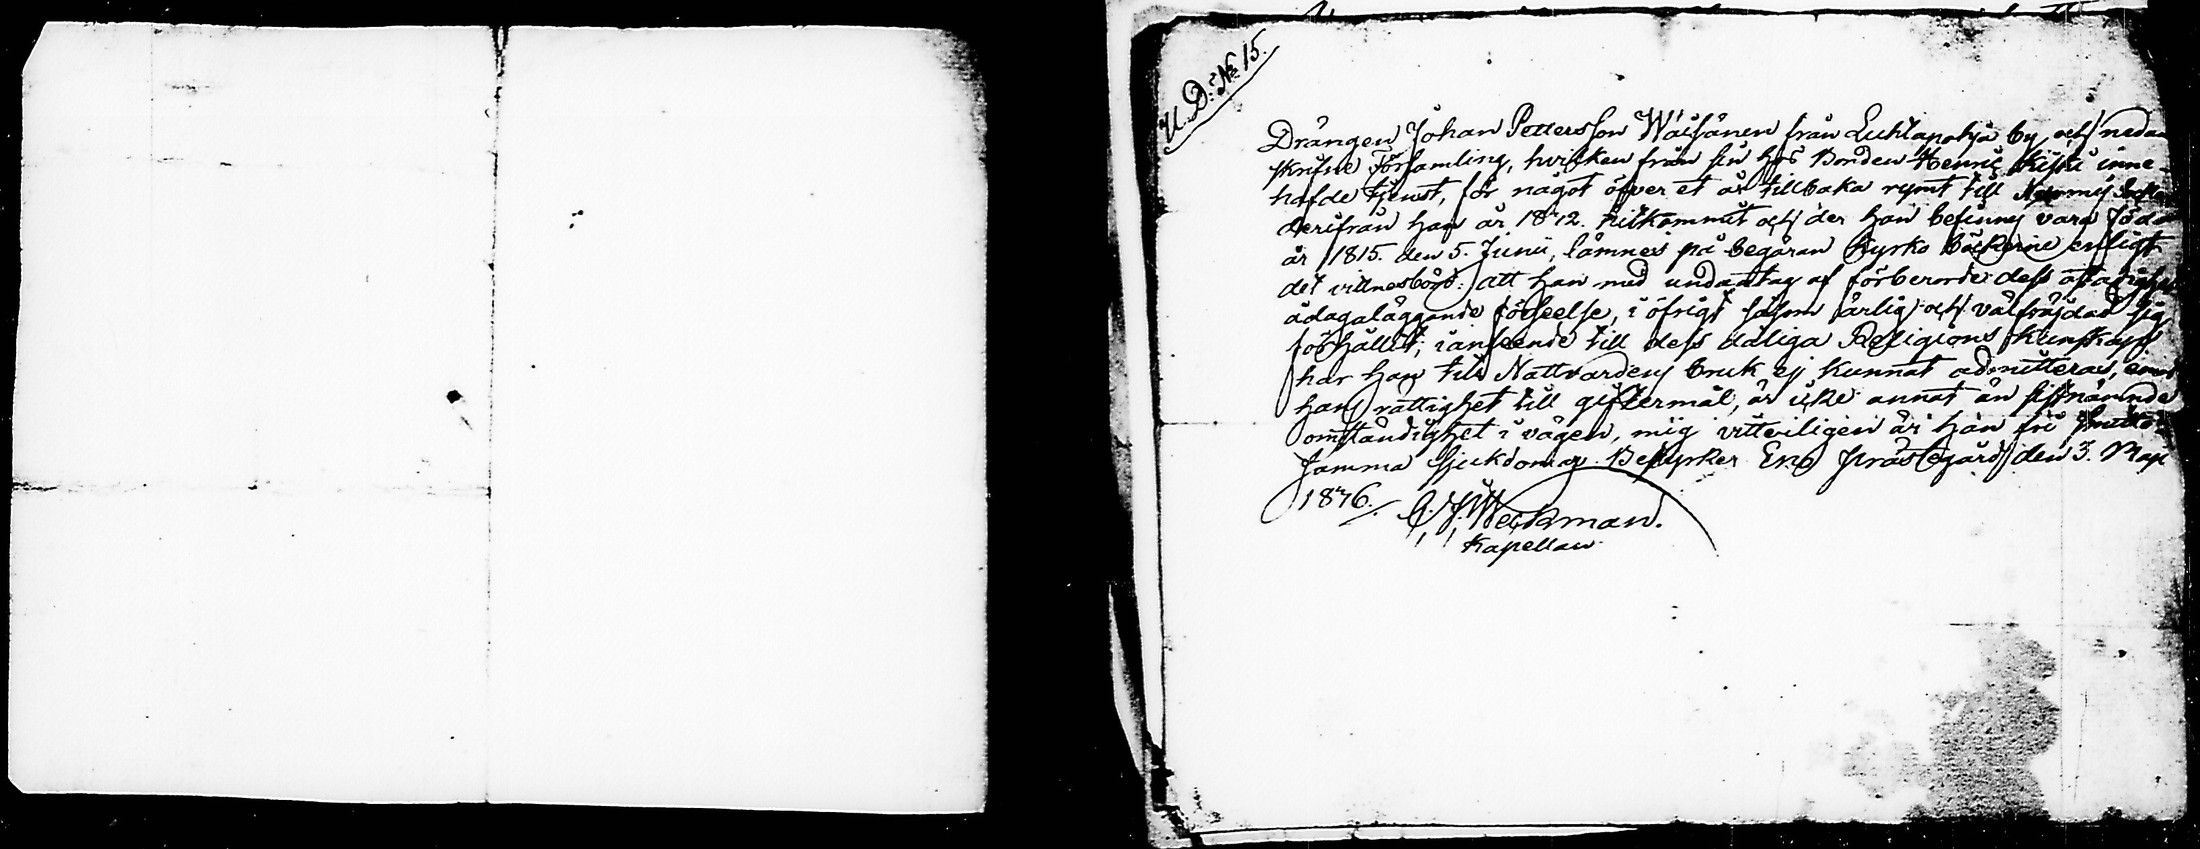 U. D: № 15.
Drängen Johan Pettersson Wäisänen från Luhtapohja by, och nedan
skrifne Församling, hvilken från sin hos Bonden Henric Kiiski inne-
hafde tjenst, för något öfver et år tillbaka rymt till
derifrån han år 1842. hitkommit och der han befinnes vara född
år 1815. den 5. Junii, lämnes på begäran Kyrko Böckerne enligt
det vittnesbörd: att han med undantag af förberörde dess
ådagaläggande förseelse, i öfrigt såsom ärlig och välfräjdad sig
förhållit; i anseende till dess dåliga Religions kunskap
har han till Nattvardens bruk ej kunnat admitteras,
hans rättighet till giftermål, är icke annat än sistnämnde
omständighet i vägen, mig vitterligen är han fri
samma sjukdomar. Bestyrker Eno prästegård den 3. Maji
1846. C. J. Weckman.
Kapellan